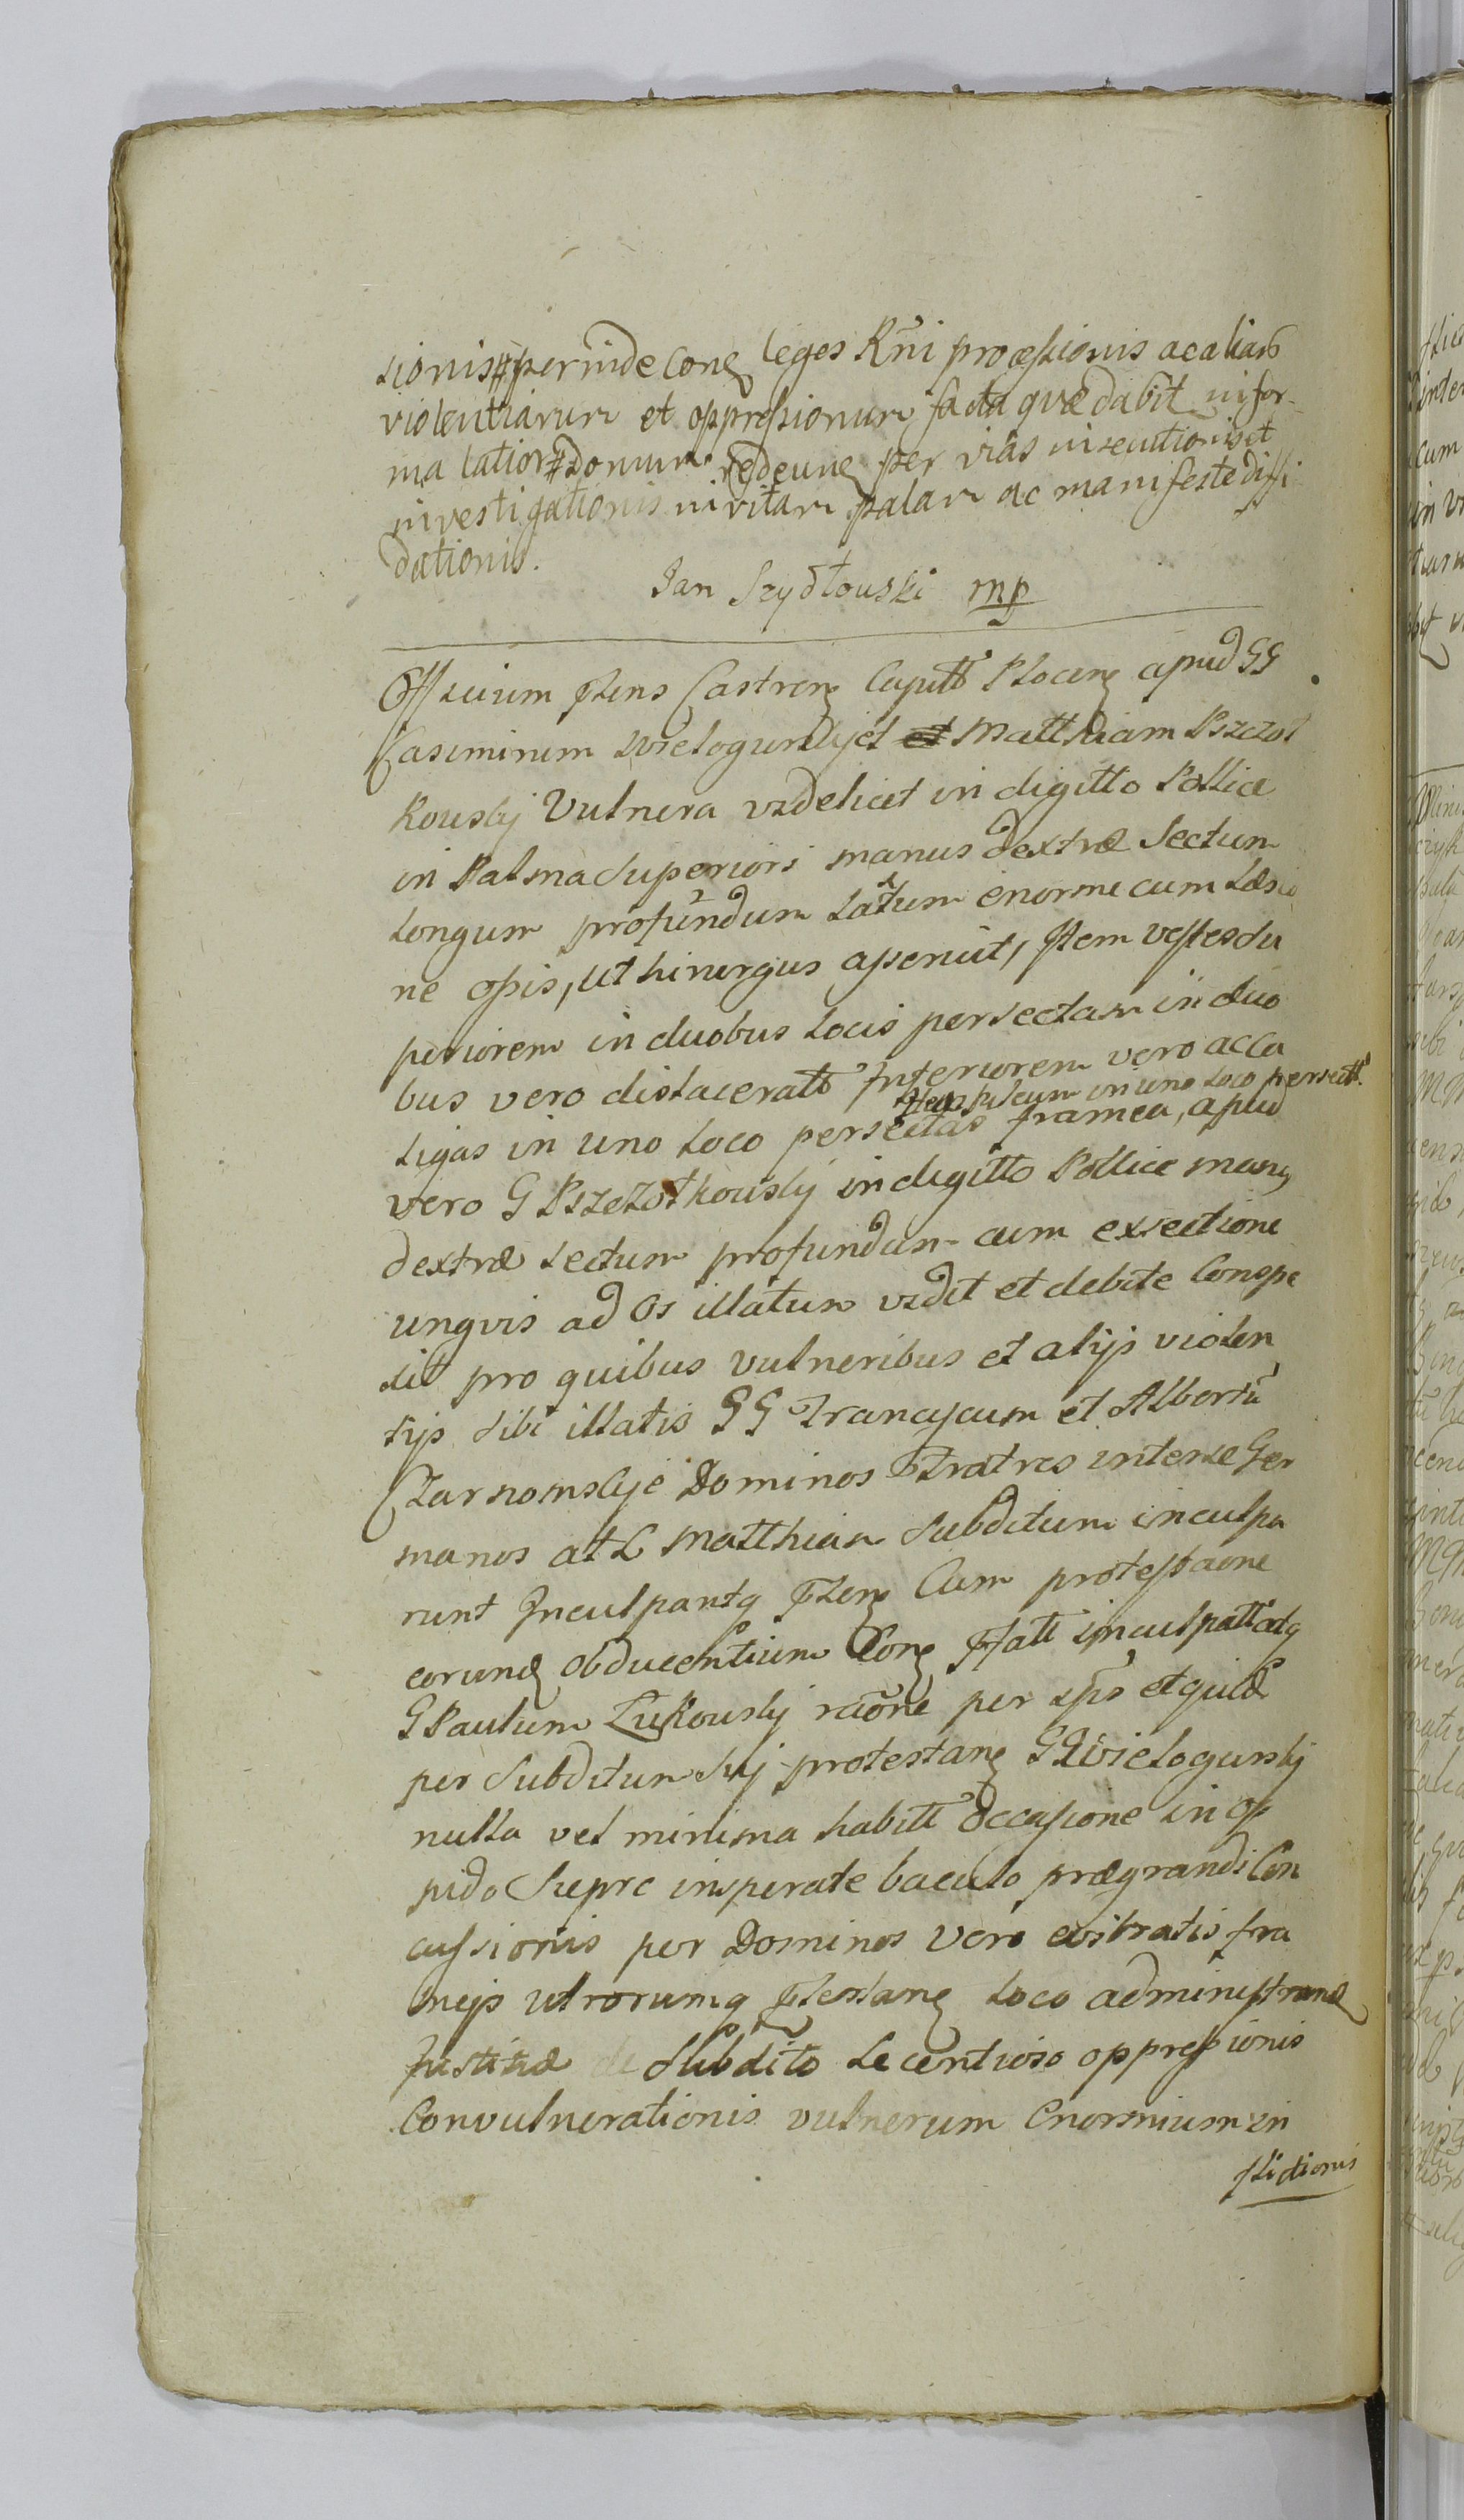 sionis # perinde Conq leges Rñi processionis ac aliarū
violentiarum et oppressionum facta quæ dabit in for-
ma latiori # domum redeunq per vias insecutionis et
investigationis in vitam palam ac manifeste diffi
dationis.
Jan Szydłowski mp
Officium Pzens Castren Capitt Plocen apud GG
Casimirum Wielogurskij et et Matthiam Pszczoł
kowskij Vulnera videlicet in digitto Pollice
in Palma superiori manus dextræ Sectum
longum profundum latum enorme cum Læsio
ne ossis, ut hirurgus aperuit, Item vestes su
periorem in duobus locis persectam in duo
bus vero dislaceratt Interiorem vero acca
Item pileum in uno loco persectt
ligas in uno loco persectas framea, apud
vero G Pszczołkowskij in digitto Pollice manq
dextræ sectum profundum cum exsectione
ungvis ad os illatum vidit et debite Conspe
xit pro quibus vulneribus et alijs violen
tijs sibi illatis GG Franciscum et Albertū
Czarnomskje Dominos Fratres inter se Ger
manos at L Matthiam Subditum inculpa
runt Inculpantq Pzenq Cum protestaone
eorund obducentium Conq Pfatt inculpatt atq
G Paulum Zukowskij raõne per ipõs et quid
per Subditum sui protestanq G Wielogurskij
nulla vel minima habitt occasione in op
pido Sieprc insperate baculo prægrandi Con
cussionis per Dominos vero evibratis fra
meis utrorumq Ptestanq loco administrand
Justitiæ de Subdito Licentioso oppressionis
Convulnerationis vulnerum Enormium in
flictionis